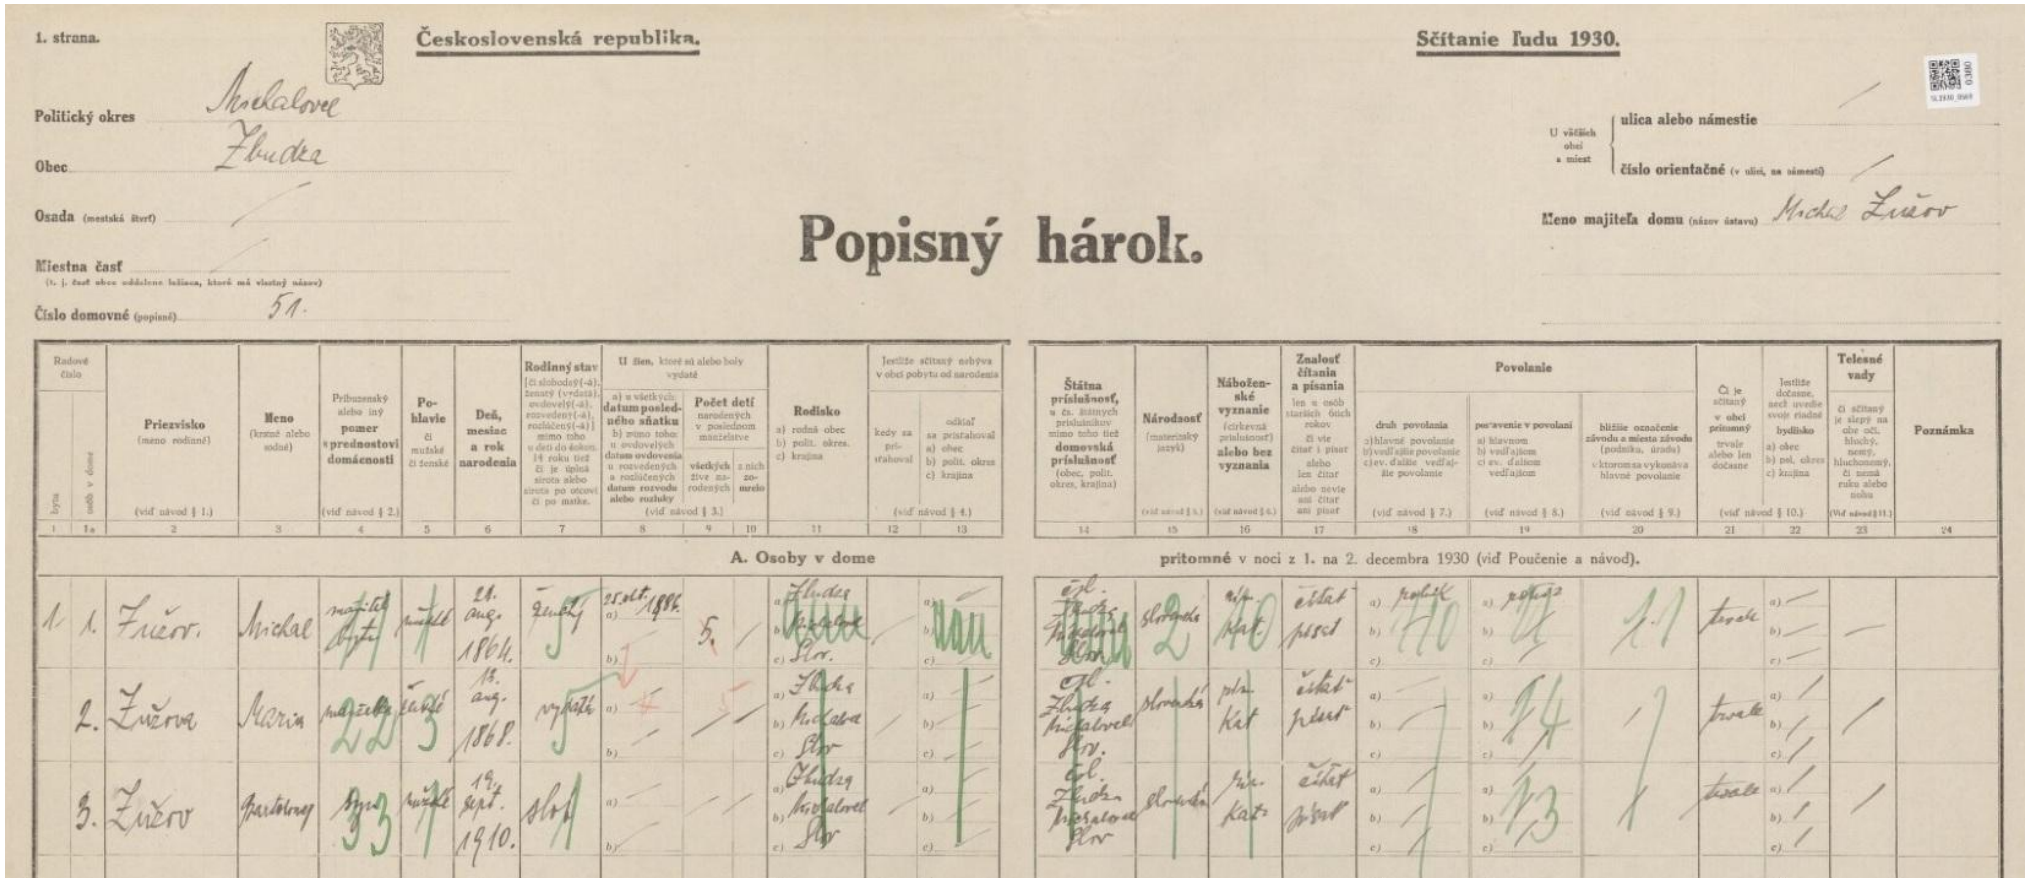 1. strana.
Československá republika.
Sčítanie ľudu 1930.
0380
Politický okres Michalovce
Obec Zbudza
Osada (mestská štvrť) /
Miestna časť /
(t. j. časť obce oddelene ležiaca, ktorá má vlastný názov)
Číslo domovné (popisné) 51.
Popisný hárok.
U väčších obcí a miest
ulica alebo námestie /
číslo orientačné (v ulici, na námestí) /
Meno majiteľa domu (názov ústavu) Michal Zužov
Radové číslo
bytu
osôb v dome
Priezvisko (meno rodinné) (viď návod § 1.)
Meno (krstné alebo rodné)
Príbuzenský alebo iný pomer k prednostovi domácnosti (viď návod § 2.)
Pohlavie či mužské či ženské
Deň, mesiac a rok narodenia
Rodinný stav [či slobodný(-á), ženatý (vydatá), ovdovelý(-á), rozvedený(-á), rozlúčený(-á)] mimo toho u detí do dokon. 14 roku tiež či je úplná sirota alebo sirota po otcovi či po matke.
U žien, ktoré sú alebo boly vydaté
a) u všetkých: datum posledného sňatku b) mimo toho: datum ovdovenia u ovdovelých u rozvedených a rozlúčených datum rozvodu alebo rozluky
Počet detí narodených v poslednom manželstve
všetkých žive narodených
z nich zomrelo
(viď návod § 3.)
Rodisko a) rodná obec b) polit. okres. c) krajina
Jestliže sčítaný nebýva v obci pobytu od narodenia
kedy sa prisťahoval
odkiaľ sa prisťahoval a) obec b) polit. okres c) krajina
(viď návod § 4.)
Štátna príslušnosť, u čs. štátnych príslušníkov mimo toho tiež domovská príslušnosť (obec, polit. okres, krajina)
Národnosť (materinský jazyk) (viď návod § 5.)
Náboženské vyznanie (cirkevná príslušnosť) alebo bez vyznania (viď návod § 6.)
Znalosť čítania a písania len u osôb starších 6tich rokov či vie čítať i písať alebo len čítať alebo nevie ani čítať ani písať
Povolanie
druh povolania a) hlavné povolanie b) vedľajšie povolanie c) ev. ďalšie vedľajšie povolanie (viď návod § 7.)
postavenie v povolaní a) hlavnom b) vedľajšom c) ev. ďalšom vedľajšom (viď návod § 8.)
bližšie označenie závodu a miesta závodu (podniku, úradu) v ktorom sa vykonáva hlavné povolanie (viď návod § 9.)
Či je sčítaný v obci prítomný trvale alebo len dočasne
Jestliže dočasne, nech uvedie svoje riadne bydlisko a) obec b) pol. okres c) krajina
(viď návod § 10.)
Telesné vady či sčítaný je slepý na obe oči, hluchý, nemý, hluchonemý, či nemá ruku alebo nohu (Viď návod § 11.)
Poznámka
1 1a 2 3 4 5 6 7 8 9 10 11 12 13 14 15 16 17 18 19 20 21 22 23 24
A. Osoby v dome prítomné v noci z 1. na 2. decembra 1930 (viď Poučenie a návod).
1. 1. Zužov. Michal majiteľ bytu mužské 21. aug. 1864. ženatý 25. okt. 1886. 5. / a) Zbudza b) Michalovce c) Slov. čsl. Zbudza Michalovce Slov. slovenská rím. kat. čítať písať a) rolník trvale
2. Zužova Maria manželka ženské 12. aug. 1868. vydatá a) Zbudza b) Michalovce c) Slov čsl. Zbudza Michalovce Slov. slovenská rím. Kat čítať písať trvale
3. Zužov syn mužské 19. sept. 1910. slob a) Zbudza b) Michalovce c) Slov čsl. Zbudza Michalovce Slov slovenská rím. Kat. čítať písať trvale